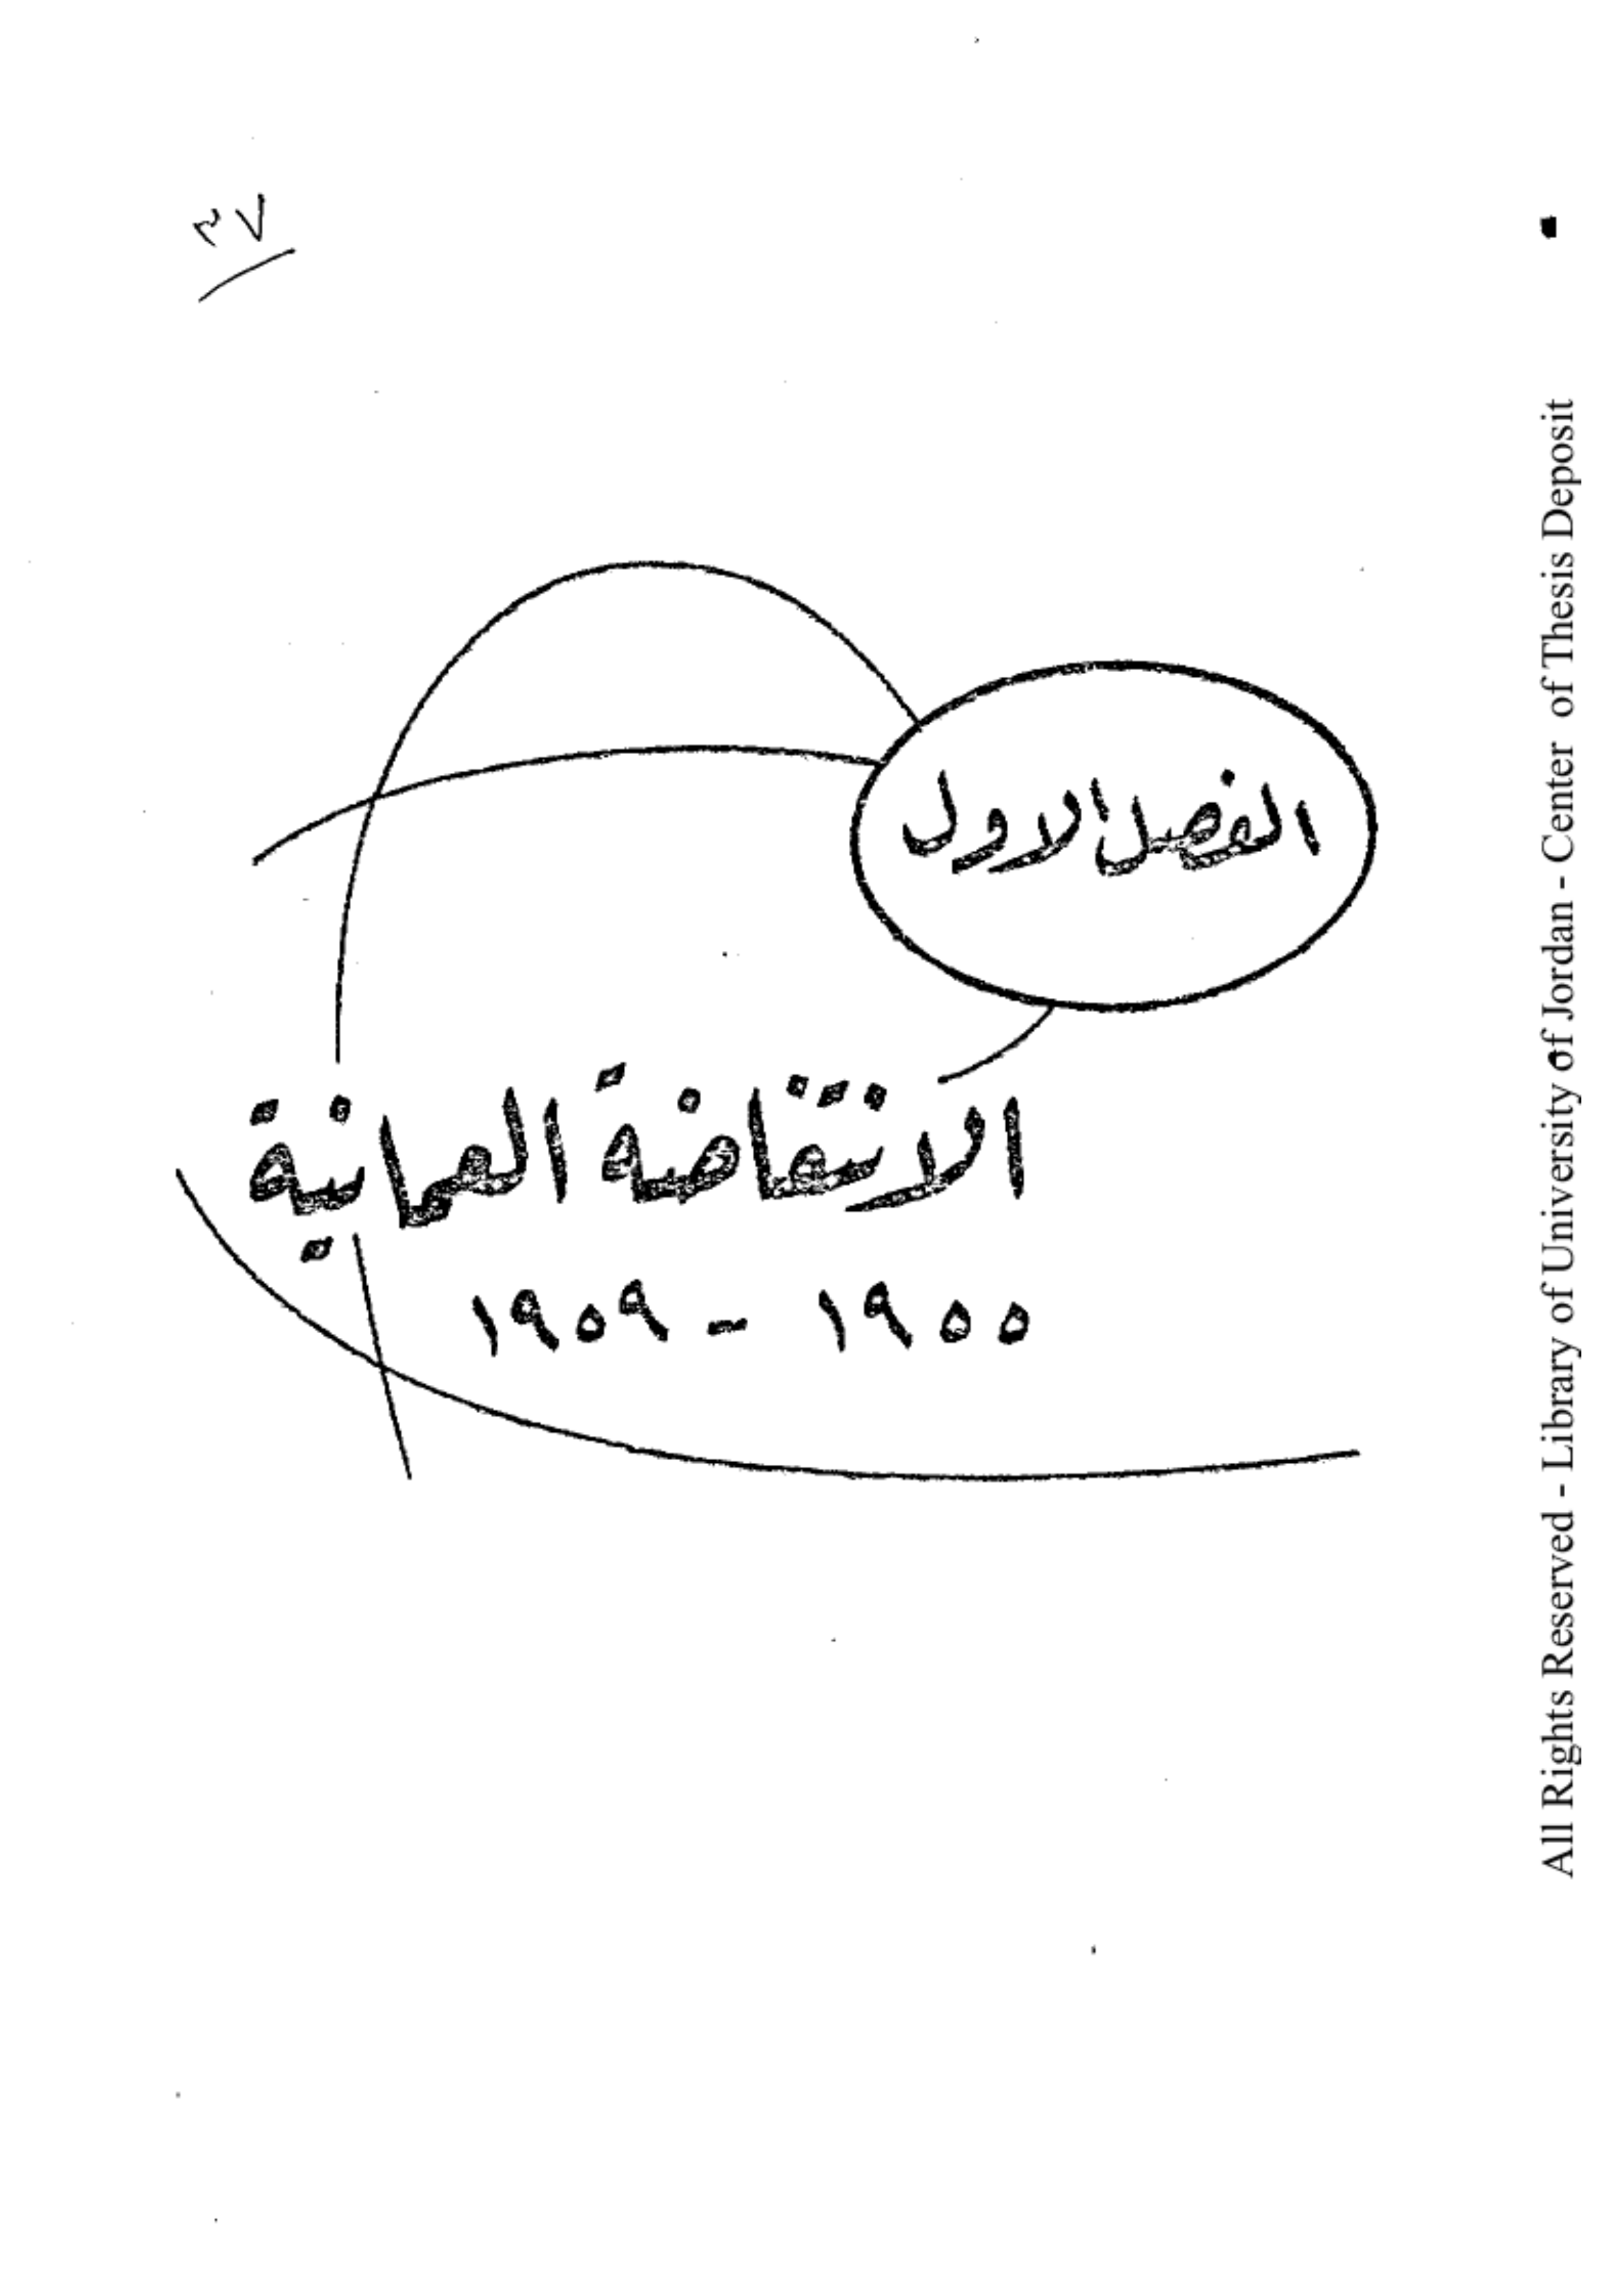 الفصل الاول
الانتفاضة العمانية
١٩٥٥ - ١٩٥٩
All Rights Reserved - Library of University of Jordan - Center of Thesis Deposit